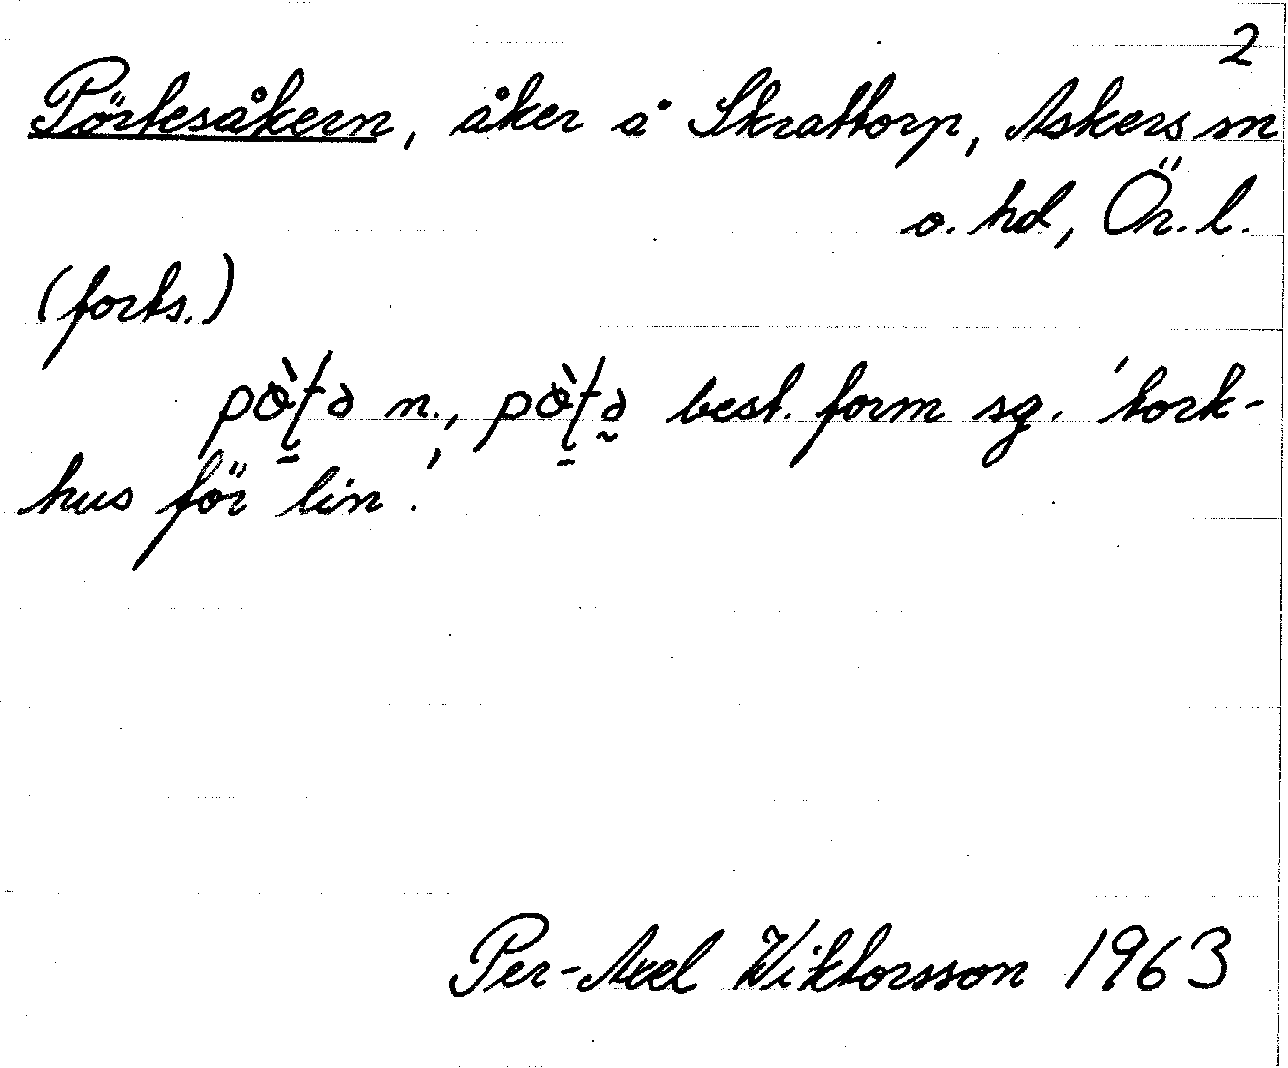 2
Pörtesåkern, åker å Skrattorp, Askers sn
o. hd, Ör. l.
(forts.)
n., best. form sg. 'tork-
hus för lin'.
Per-Axel Wiktorsson 1963